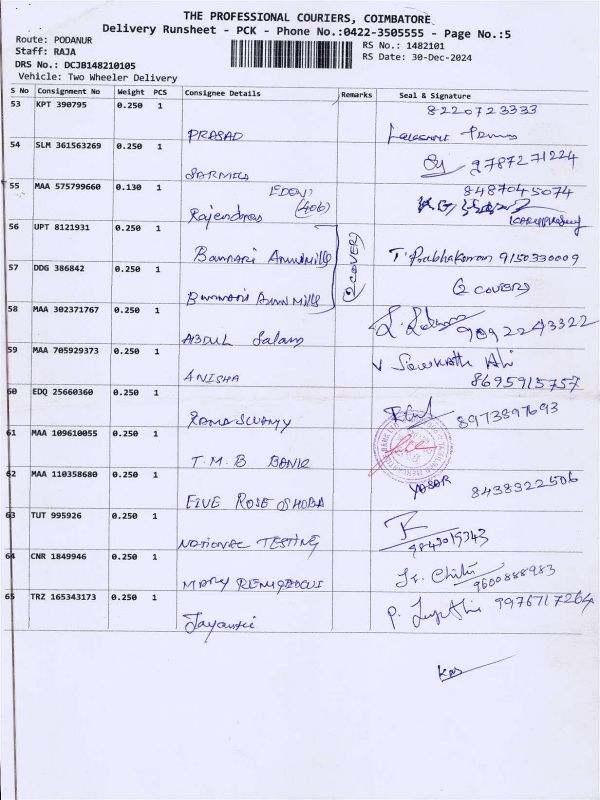 THE PROFESSIONAL COURIERS, COIMBATORE
Delivery Runsheet - PCK - Phone No.:0422-3505555 - Page No.:5
Route: PODANUR RS No.: 1482101
Staff: RAJA RS Date: 30-Dec-2024
DRS No.: DCJB148210105
Vehicle: Two Wheeler Delivery
S No Consignment No Weight PCS Consignee Details Remarks Seal & Signature
53 KPT 390795 0.250 1 8220723333
PRASAD
54 SLM 361563269 0.250 1 9787271224
SARMILA
55 MAA 575799660 0.130 1 EDEN 8487045074
Rajendran (406)
56 UPT 8121931 0.250 1
Bannari Ammn Mills (2 COVER) T. Prabhakaran 9150330009
57 DDG 386842 0.250 1 (2 COVER)
Bannari Amn Mills
58 MAA 302371767 0.250 1 9092243322
ABDUL Salam
59 MAA 705929373 0.250 1 Ali
ANISHA 8695915757
60 EDQ 25660360 0.250 1 8973897693
RAMASWAMY
61 MAA 109610055 0.250 1
T.M.B BANK
62 MAA 110358680 0.250 1 YASAR 8438322506
FIVE ROSE SHOBA
63 TUT 995926 0.250 1
NATIONAL TESTING 9843015343
64 CNR 1849946 0.250 1 9600888983
MARY
65 TRZ 165343173 0.250 1 9976717264
Jayanthi